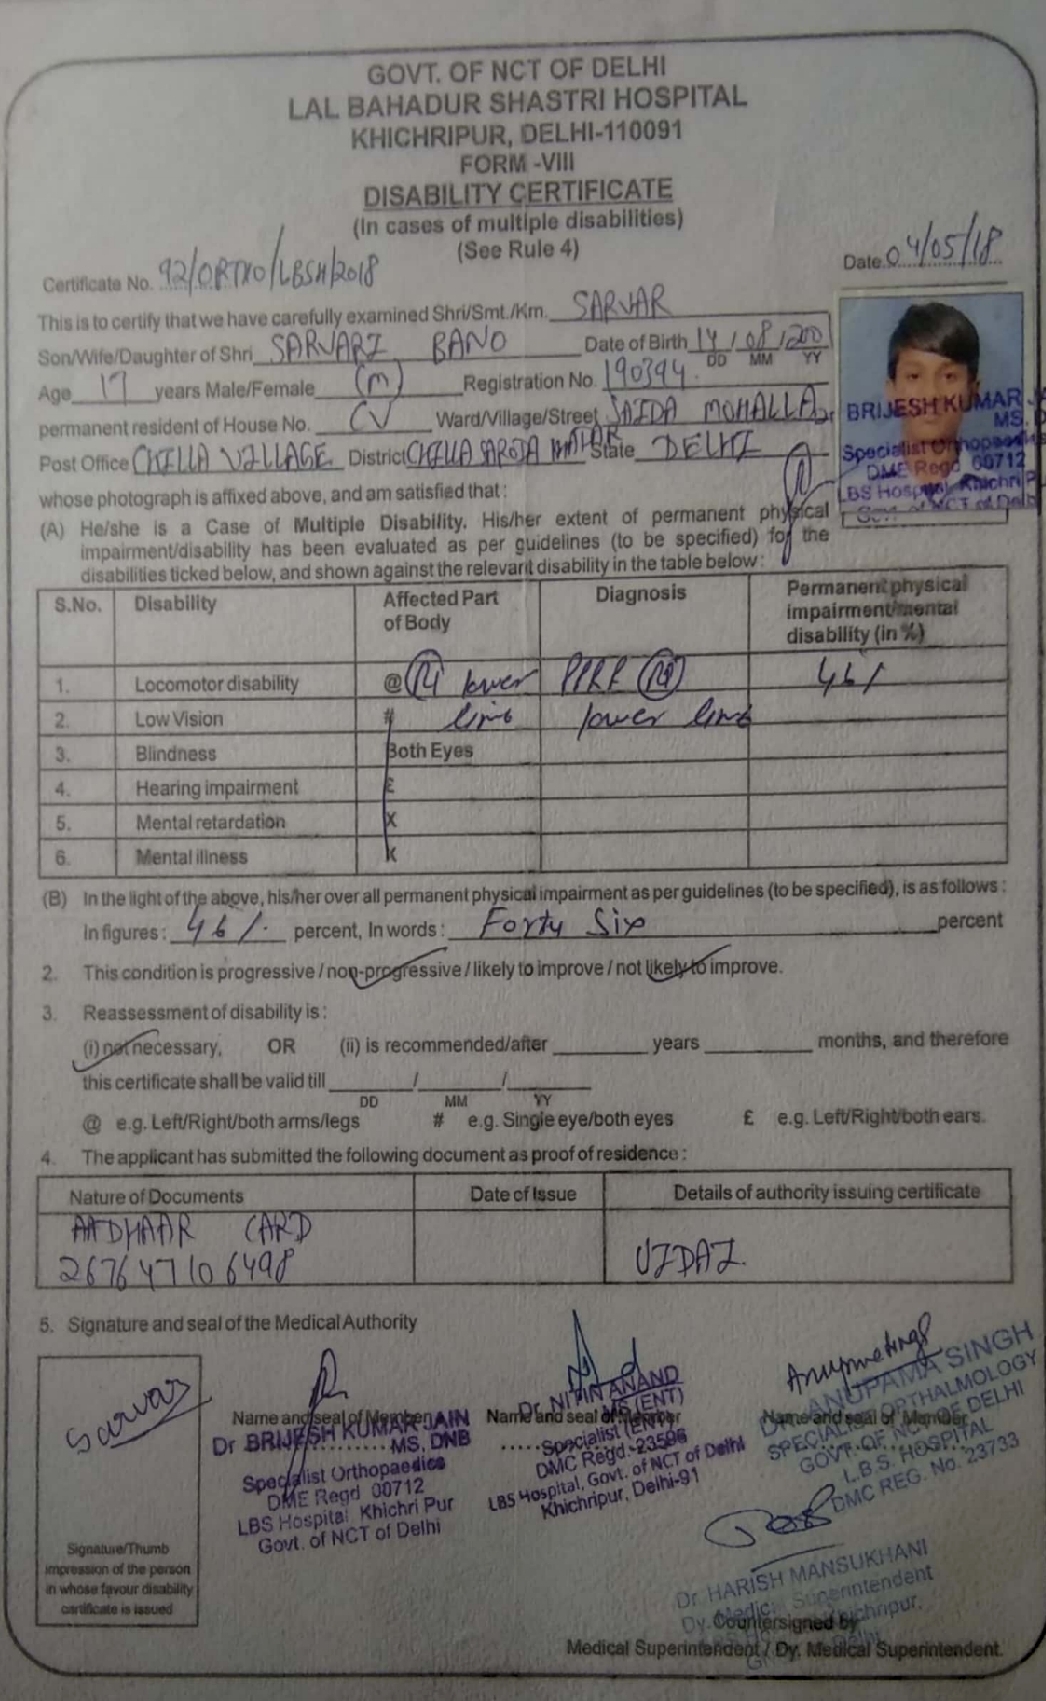 GOVT. OF NCT OF DELHI
LAL BAHADUR SHASTRI HOSPITAL
KHICHRIPUR, DELHI-110091
FORM -VIII
DISABILITY CERTIFICATE
(In cases of multiple disabilities)
(See Rule 4)
Certificate No. 92/ORTHO/LBSH/2018
Date 04/05/18
This is to certify that we have carefully examined Shri/Smt./Km. SARVAR
Son/Wife/Daughter of Shri SARVARI BANO Date of Birth 14/08/200
DD MM YY
Age 17 years Male/Female (M) Registration No. 190394.
permanent resident of House No. CV Ward/Village/Street SAIDA MOHALLA
Post Office CHILLA VILLAGE District CHILLA SAROJA State DELHI
BRIJESH KUMAR
MS.
Specialist Orthopaedics
DME Regd 00712
LBS Hospital, Khichri
Govt. of NCT of Delhi
whose photograph is affixed above, and am satisfied that :
(A) He/she is a Case of Multiple Disability. His/her extent of permanent physical
impairment/disability has been evaluated as per guidelines (to be specified) for the
disabilities ticked below, and shown against the relevant disability in the table below :
S.No. Disability Affected Part of Body Diagnosis Permanent physical impairment/mental disability (in %)
1. Locomotor disability @ lower PPRP 46%
2. Low Vision # limb lower limb
3. Blindness Both Eyes
4. Hearing impairment £
5. Mental retardation X
6. Mental illness K
(B) In the light of the above, his/her over all permanent physical impairment as per guidelines (to be specified), is as follows :
In figures : 46%. percent, In words : Forty Six percent
2. This condition is progressive / non-progressive / likely to improve / not likely to improve.
3. Reassessment of disability is :
(i) not necessary, OR (ii) is recommended/after ______ years ______ months, and therefore
this certificate shall be valid till ______/______/______
DD MM YY
@ e.g. Left/Right/both arms/legs # e.g. Single eye/both eyes £ e.g. Left/Right/both ears.
4. The applicant has submitted the following document as proof of residence :
Nature of Documents Date of Issue Details of authority issuing certificate
AADHAAR CARD
267647106498 UIDAI.
5. Signature and seal of the Medical Authority
Sarvar
Signature/Thumb
impression of the person
in whose favour disability
certificate is issued
Name and seal of Member
Dr BRIJESH KUMAR JAIN
MS, DNB
Specialist Orthopaedics
DME Regd 00712
LBS Hospital Khichri Pur
Govt. of NCT of Delhi
Dr. NITIN ANAND
MS (ENT)
Name and seal of Member
Specialist (ENT)
DMC Regd.-23596
LBS Hospital, Govt. of NCT of Delhi
Khichripur, Delhi-91
ANUPAMA SINGH
Name and seal of Member
SPECIALIST OPHTHALMOLOGY
GOVT. OF NCT OF DELHI
L.B.S. HOSPITAL
DMC REG. No. 23733
Dr. HARISH MANSUKHANI
Dy. Medical Superintendent
Countersigned by
Medical Superintendent / Dy. Medical Superintendent.